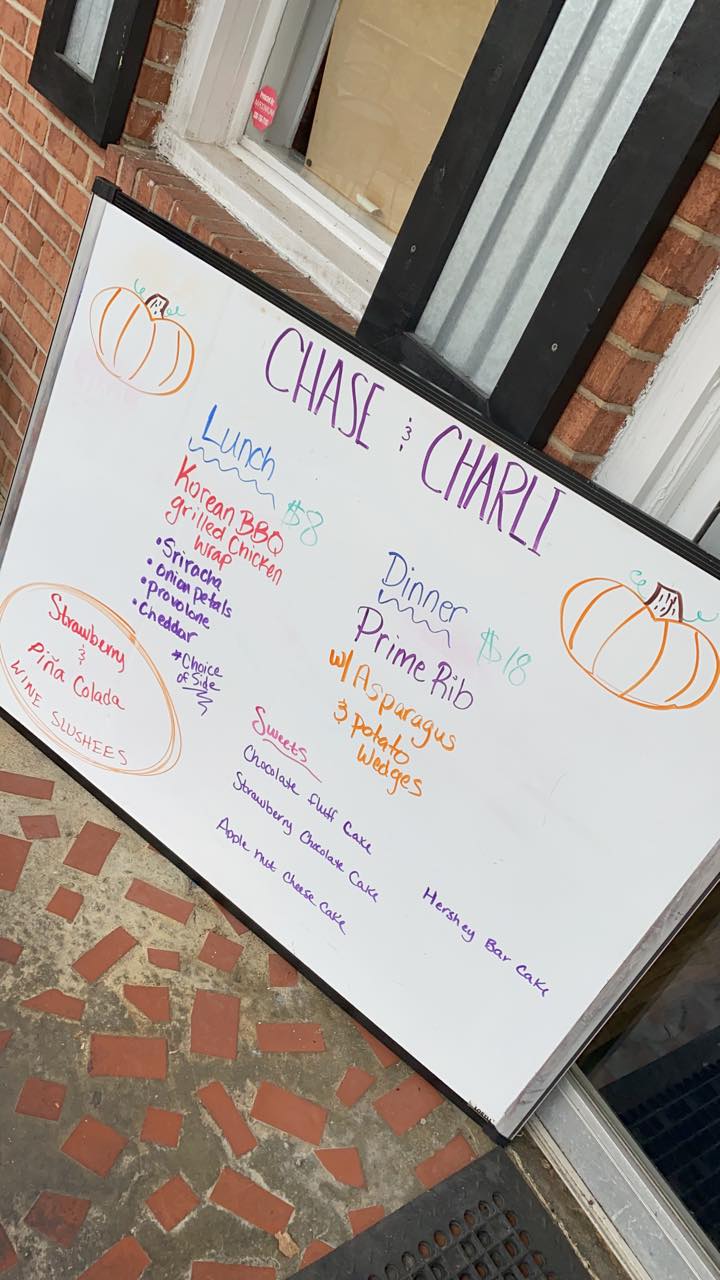 CHASE & CHARLI
Lunch
$8
Korean BBQ
grilled Chicken
wrap
• Sriracha
• onion petals
• provolone
• Cheddar
*Choice
of Side
Strawberry
&
Piña Colada
WINE SLUSHEES
Dinner
$18
Prime Rib
w/ Asparagus
& potato
wedges
Sweets
Chocolate fluff Cake
Strawberry Chocolate Cake
Apple Nut Cheese Cake
Hershey Bar Cake